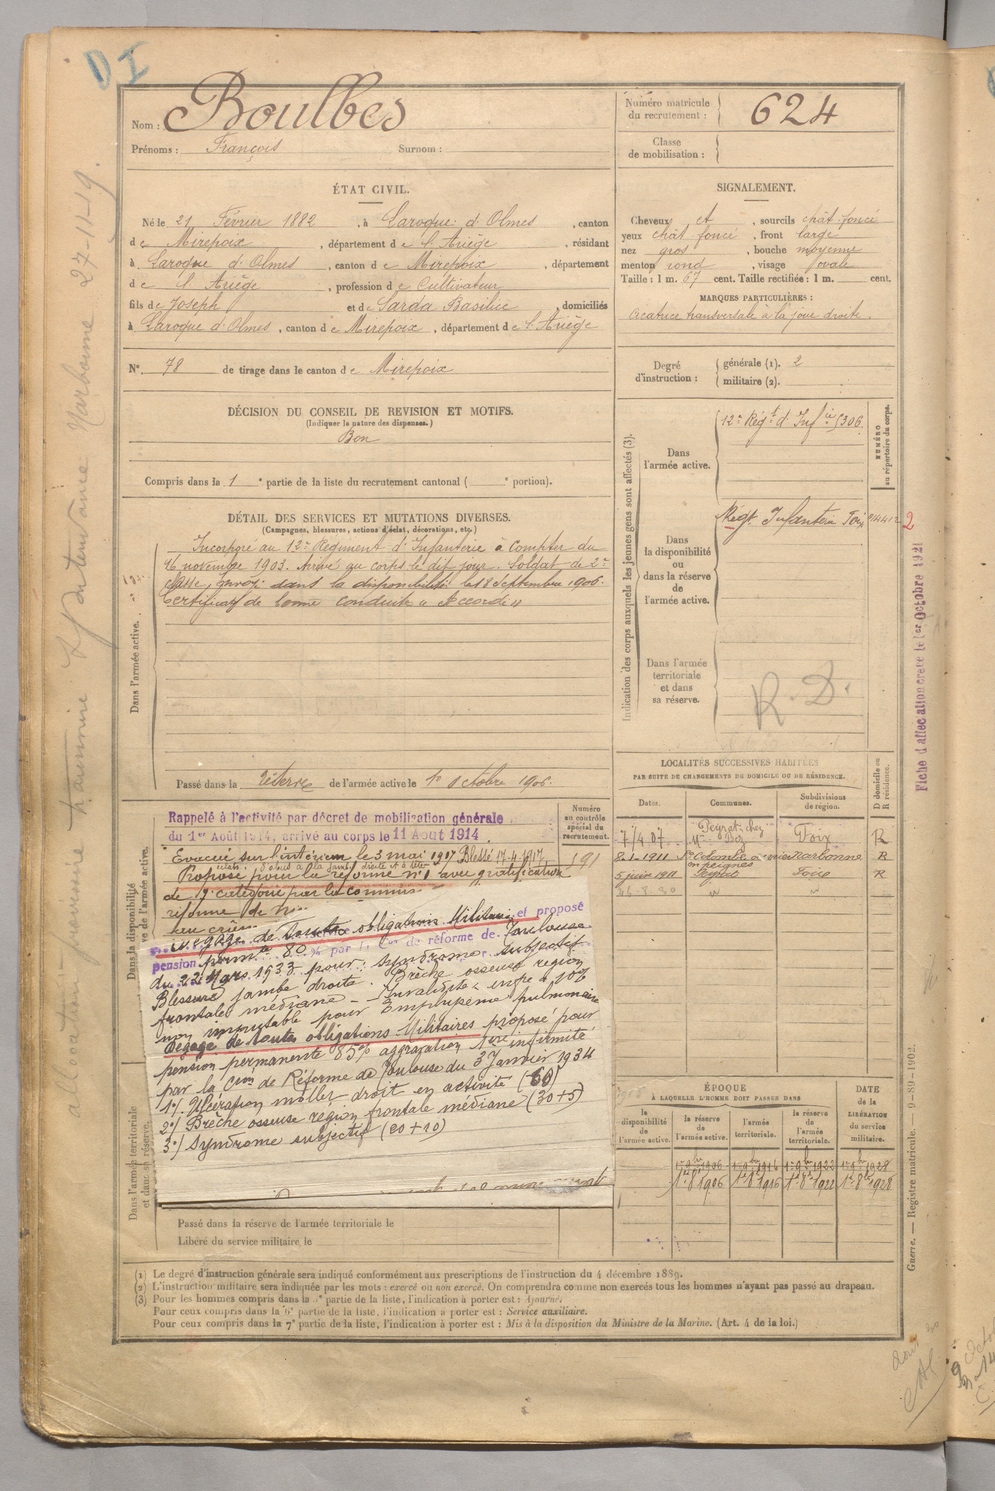 D I
Nom : Boulbes
Prénoms : François Surnom :
Numéro matricule
du recrutement : 624
Classe
de mobilisation :
ÉTAT CIVIL.
Né le 21 Février 1882, à Laroque d'Olmes, canton
de Mirepoix, département de l'Ariège, résidant
à Laroque d'Olmes, canton de Mirepoix, département
de l'Ariège, profession de Cultivateur
fils de Joseph et de Sarda Basilice, domiciliés
à Laroque d'Olmes, canton de Mirepoix, département de l'Ariège
N° 78 de tirage dans le canton de Mirepoix
SIGNALEMENT.
Cheveux et, sourcils chât foncé
yeux chât foncé, front large
nez gros, bouche moyenne
menton rond, visage ovale
Taille : 1 m. 67 cent. Taille rectifiée : 1 m. cent.
MARQUES PARTICULIÈRES :
Cicatrice transversale à la joue droite.
Degré
d'instruction :
générale (1). 2
militaire (2).
DÉCISION DU CONSEIL DE REVISION ET MOTIFS.
(Indiquer la nature des dispenses.)
Bon
Compris dans la 1e partie de la liste du recrutement cantonal ( e portion).
DÉTAIL DES SERVICES ET MUTATIONS DIVERSES.
(Campagnes, blessures, actions d'éclat, décorations, etc.)
Dans l'armée active.
Incorporé au 12e Régiment d'Infanterie à compter du
16 novembre 1903. Arrivé au corps le dit jour. Soldat de 2e
classe, Envoyé dans la disponibilité le 18 Septembre 1906.
Certificat de bonne conduite "Accordé"
Passé dans la réserve de l'armée active le 1er Octobre 1906.
Indication des corps auxquels les jeunes gens sont affectés (3).
Dans
l'armée active.
12e Régt d'Infie 5306
NUMÉRO
au répertoire du corps.
Dans
la disponibilité
ou
dans la réserve
de
l'armée active.
Régt Infanterie Foix
2
Dans l'armée
territoriale
et dans
sa réserve.
R. D.
Fiche d'affectation créée le 1er Octobre 1921
LOCALITÉS SUCCESSIVES HABITÉES
PAR SUITE DE CHANGEMENTS DE DOMICILE OU DE RÉSIDENCE.
Dates. Communes. Subdivisions
de région. D domicile ou
R résidence.
7/4 07 Peyrat chez Foix R
2.1.1911 Ste Colombe Narbonne R
5 juin 1911 Peyrat Foix R
Dans la disponibilité
Rappelé à l'activité par décret de mobilisation générale
du 1er Août 1914, arrivé au corps le 11 Août 1914
Numéro
au contrôle
spécial du
recrutement.
191
Evacué sur l'intérieur le 3 mai 1917 Blessé 17.4.1917
Proposé pour la réforme n°1 avec gratification
de catégorie par la commis
réforme de
Dégagé de toutes obligations Militaires et proposé
pension permte 80 % par la Con de réforme de Toulouse
du 22 Mars 1933 pour : Syndrome subjectif
Blessure jambe droite. Brèche osseuse région
frontale médiane - Invalidité infre à 10%
non imputable pour Emphysème pulmonaire
Dégagé de toutes obligations Militaires proposé pour
pension permanente 85% aggravation 1ère infirmité
par la Con de Réforme de Toulouse du 3 Janvier 1934
1°/ Ulcération mollet droit en activité (60)
2°/ Brèche osseuse région frontale médiane (30+5)
3°/ Syndrome subjectif (20+10)
Dans l'armée territoriale
et dans sa réserve.
Passé dans la réserve de l'armée territoriale le
Libéré du service militaire le
ÉPOQUE
À LAQUELLE L'HOMME DOIT PASSER DANS
la
disponibilité
de
l'armée active.
la réserve
de
l'armée active.
l'armée
territoriale.
la réserve
de
l'armée
territoriale.
DATE
de la
LIBÉRATION
du service
militaire.
1er 8bre 1906 1er 8bre 1916 1er 8bre 1922 1er 8bre 1928
(1) Le degré d'instruction générale sera indiqué conformément aux prescriptions de l'instruction du 4 décembre 1889.
(2) L'instruction militaire sera indiquée par les mots : exercé ou non exercé. On comprendra comme non exercés tous les hommes n'ayant pas passé au drapeau.
(3) Pour les hommes compris dans la partie de la liste, l'indication à porter est : Ajourné.
Pour ceux compris dans la 6e partie de la liste, l'indication à porter est : Service auxiliaire.
Pour ceux compris dans la 7e partie de la liste, l'indication à porter est : Mis à la disposition du Ministre de la Marine. (Art. 4 de la loi.)
Guerre. — Registre matricule. — 9-89-1902.
Narbonne 27-11-19.